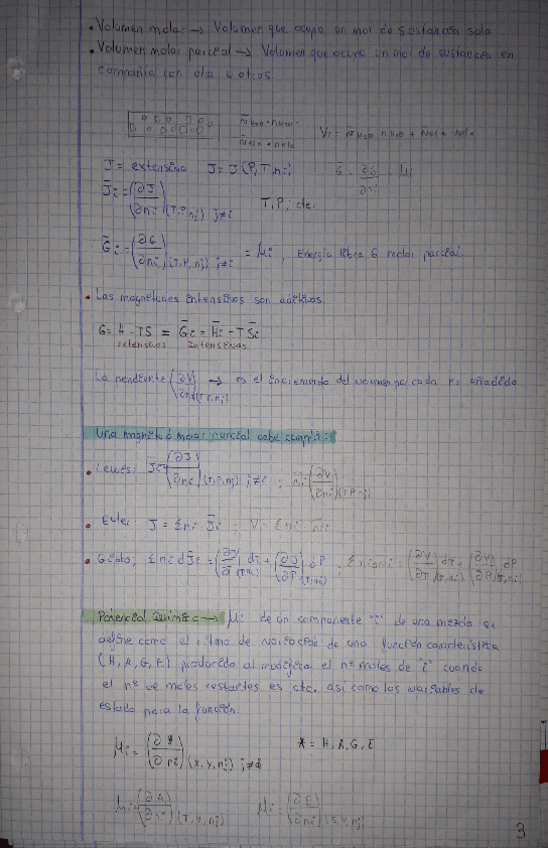 • Volumen molar → Volumen que ocupa un mol de sustancia sola
• Volumen molar parcial → Volumen que ocupa un mol de sustancia en
compañía con otra u otros
J = extensiva J = J(P,T,ni)
J̄i = (∂J/∂ni)(T,P,nj) j≠i T,P; cte.
Ḡi = (∂G/∂ni)(T,P,nj) j≠i = μi, Energía libre G molar parcial.
• Las magnitudes intensivas son aditivas.
G = H - TS = Ḡi = H̄i - TS̄i
extensivas intensivas
La pendiente (∂V/∂ni)(T,P,nj) → es el incremento del volumen por cada ni añadido
Una magnitud molar parcial debe cumplir:
• Lewis: J̄i = (∂J/∂ni)(T,P,nj) j≠i ; (∂V/∂ni)(T,P,nj)
• Euler J = Σni J̄i
• Gibbs; Σni dJ̄i = (∂J/∂T)(P,ni) dT + (∂J/∂P)(T,ni) dP
Potencial Químico → μi de un componente "i" de una mezcla se
define como el ritmo de variación de una función característica
(H, A, G, E) producida al modificar el nº moles de "i" cuando
el nº de moles restantes es cte. así como las variables de
estado para la función.
μi = (∂*/∂ni)(X,Y,nj) j≠i * = H, A, G, E
μi = (∂A/∂ni)(T,V,nj) μi = (∂E/∂ni)(S,V,nj)
3